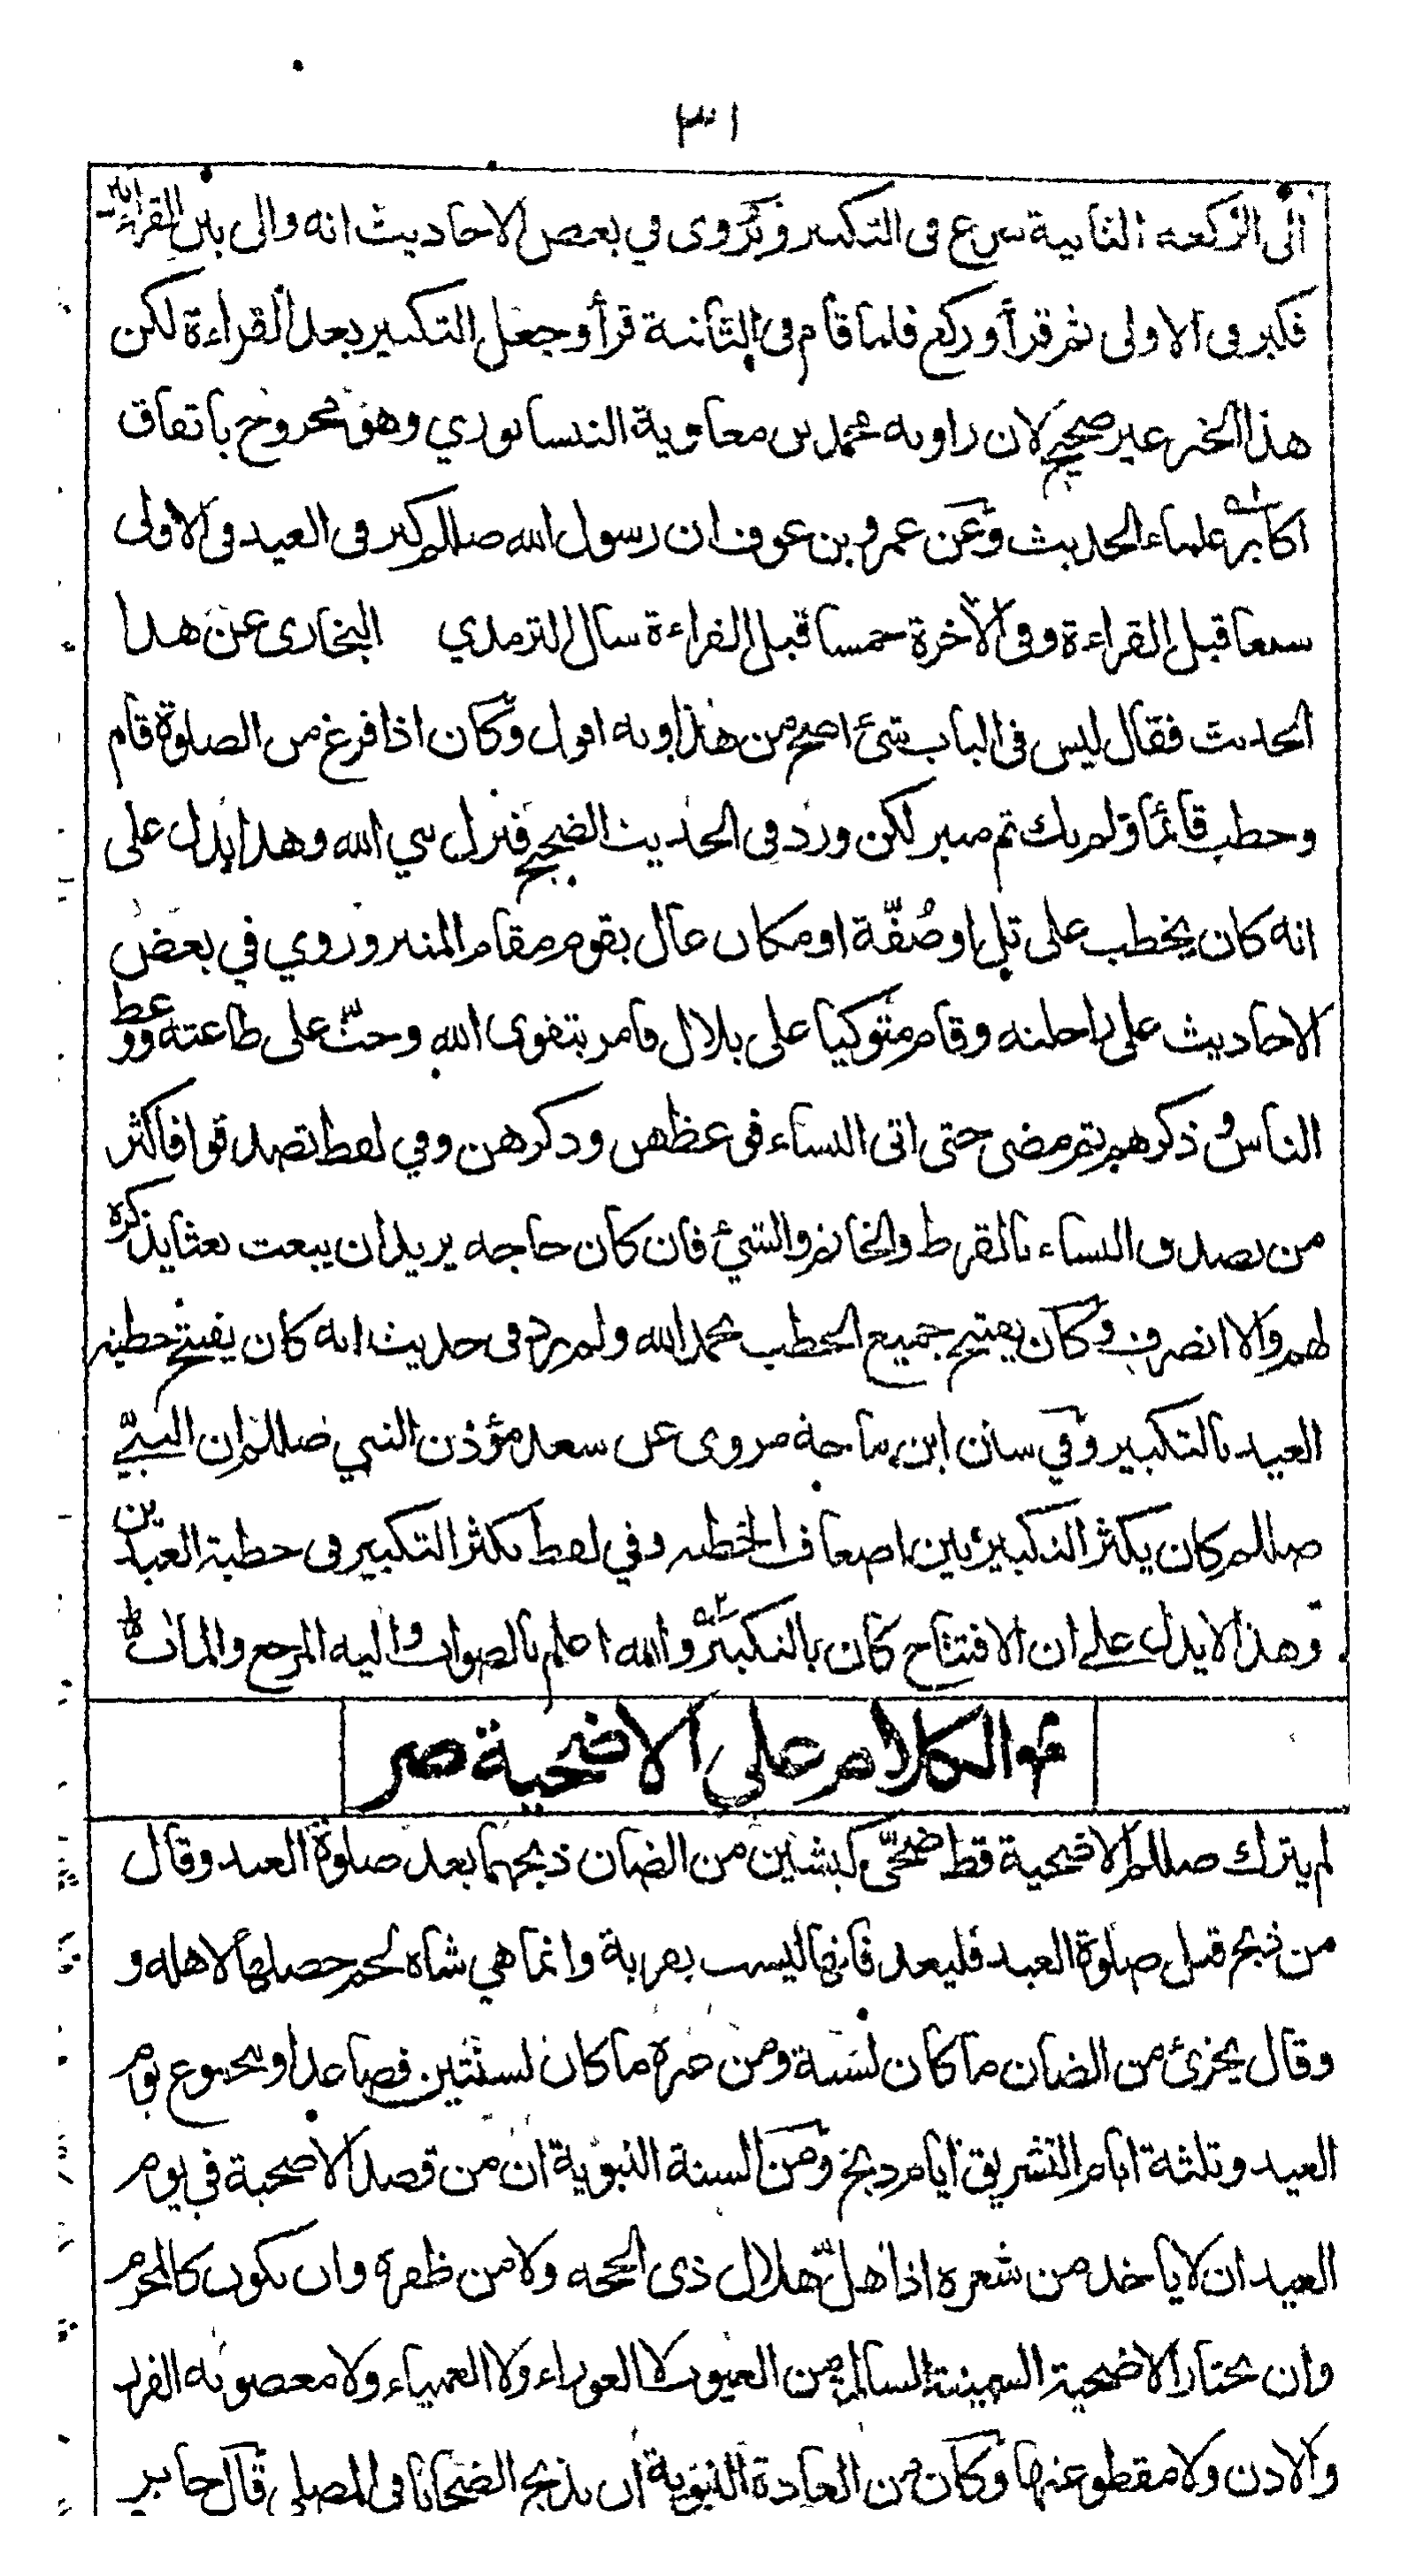 ٣١
الى الركعه الثانية شرع فى التكبير وَروى في بعض الاحاديث انه والى بين القراءتين
فكبر فى الاولى ثم قرأ وركع فلما قام فى الثانية قرأ وجعل التكبير بعد القراءة لكن
هذا الخبر غير صحيح لان راويه محمد بن معاوية النيسابوري وهو مجروح باتفاق
اكابر علماء الحديث وَعَن عمرو بن عوف ان رسول الله صللم كبر فى العيد فى الاولى
سبعا قبل القراءة وفى الاخرة خمسا قبل القراءة سال الترمذي البخارى عن هذا
الحديث فقال ليس فى الباب شئ اصح من هذا وبه اقول وَكان اذا فرغ من الصلوة قام
وخطب قائما ولم يك ثم منبر لكن ورد فى الحديث الصحيح فنزل نبي الله وهذا يدل على
انه كان يخطب على تل او صُفّة او مكان عال يقوم مقام المنبر وروي في بعض
الاحاديث على راحلته وقام متوكيا على بلال فامر بتقوى الله وحثّ على طاعته ووعظ
الناس وذكرهم ثم مضى حتى اتى النساء فوعظهن وذكرهن وفي لفظ تصدقوا فاكثر
من تصدق النساء بالقرط والخاتم والشئ فان كان حاجه يريد ان يبعث بعثا يذكره
لهم والا انصرف وَكان يفتتح جميع الخطب بحمد الله ولم يرد فى حديث انه كان يفتتح خطبة
العيد بالتكبير وَفي سنن ابن ماجة مروى عن سعد مؤذن النبي صللم ان النبيّ
صللم كان يكثر التكبير بين اضعاف الخطبه وفي لفظ يكثر التكبير فى خطبة العيدين
وهذا لا يدل على ان الافتتاح كان بالتكبير والله اعلم بالصواب واليه المرجع والماب
الكلام على الاضحية
لم يترك صللم الاضحية قط ضحّى كبشين من الضان ذبحهما بعد صلوة العيد وقال
من ذبح قبل صلوة العيد فليعد فانها ليست بقربة وانما هي شاه لحم حصلها لاهله و
وقال يجزئ من الضان ما كان لسنة ومن غيره ما كان لسنتين فصاعدا ومجموع يوم
العيد وثلثة ايام التشريق ايام ذبح وَمن السنة النبوية ان من قصد الاضحية في يوم
العيد ان لا ياخذ من شعره اذا هلّ هلال ذى الحجه ولا من ظفره وان يكون كالمحرم
وان يختار الاضحية السمينة السالمة من العيوب لا العوراء ولا العمياء ولا معضوبه القرن
والاذن ولا مقطوعتها وَكان من العادة النبوية ان يذبح الضحايا فى المصلى قال جابر